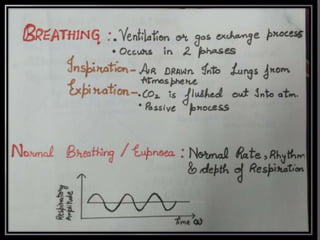 BREATHING :. Ventilation or gas exchange process
• Occurs in 2 phases
Inspiration - AIR DRAWN Into Lungs from
Atmosphere
Expiration - . CO2 is flushed out Into atm.
• Passive process
Normal Breathing / Eupnoea : Normal Rate, Rhythm
& depth of Respiration
Respiratory
Amplitude
Time